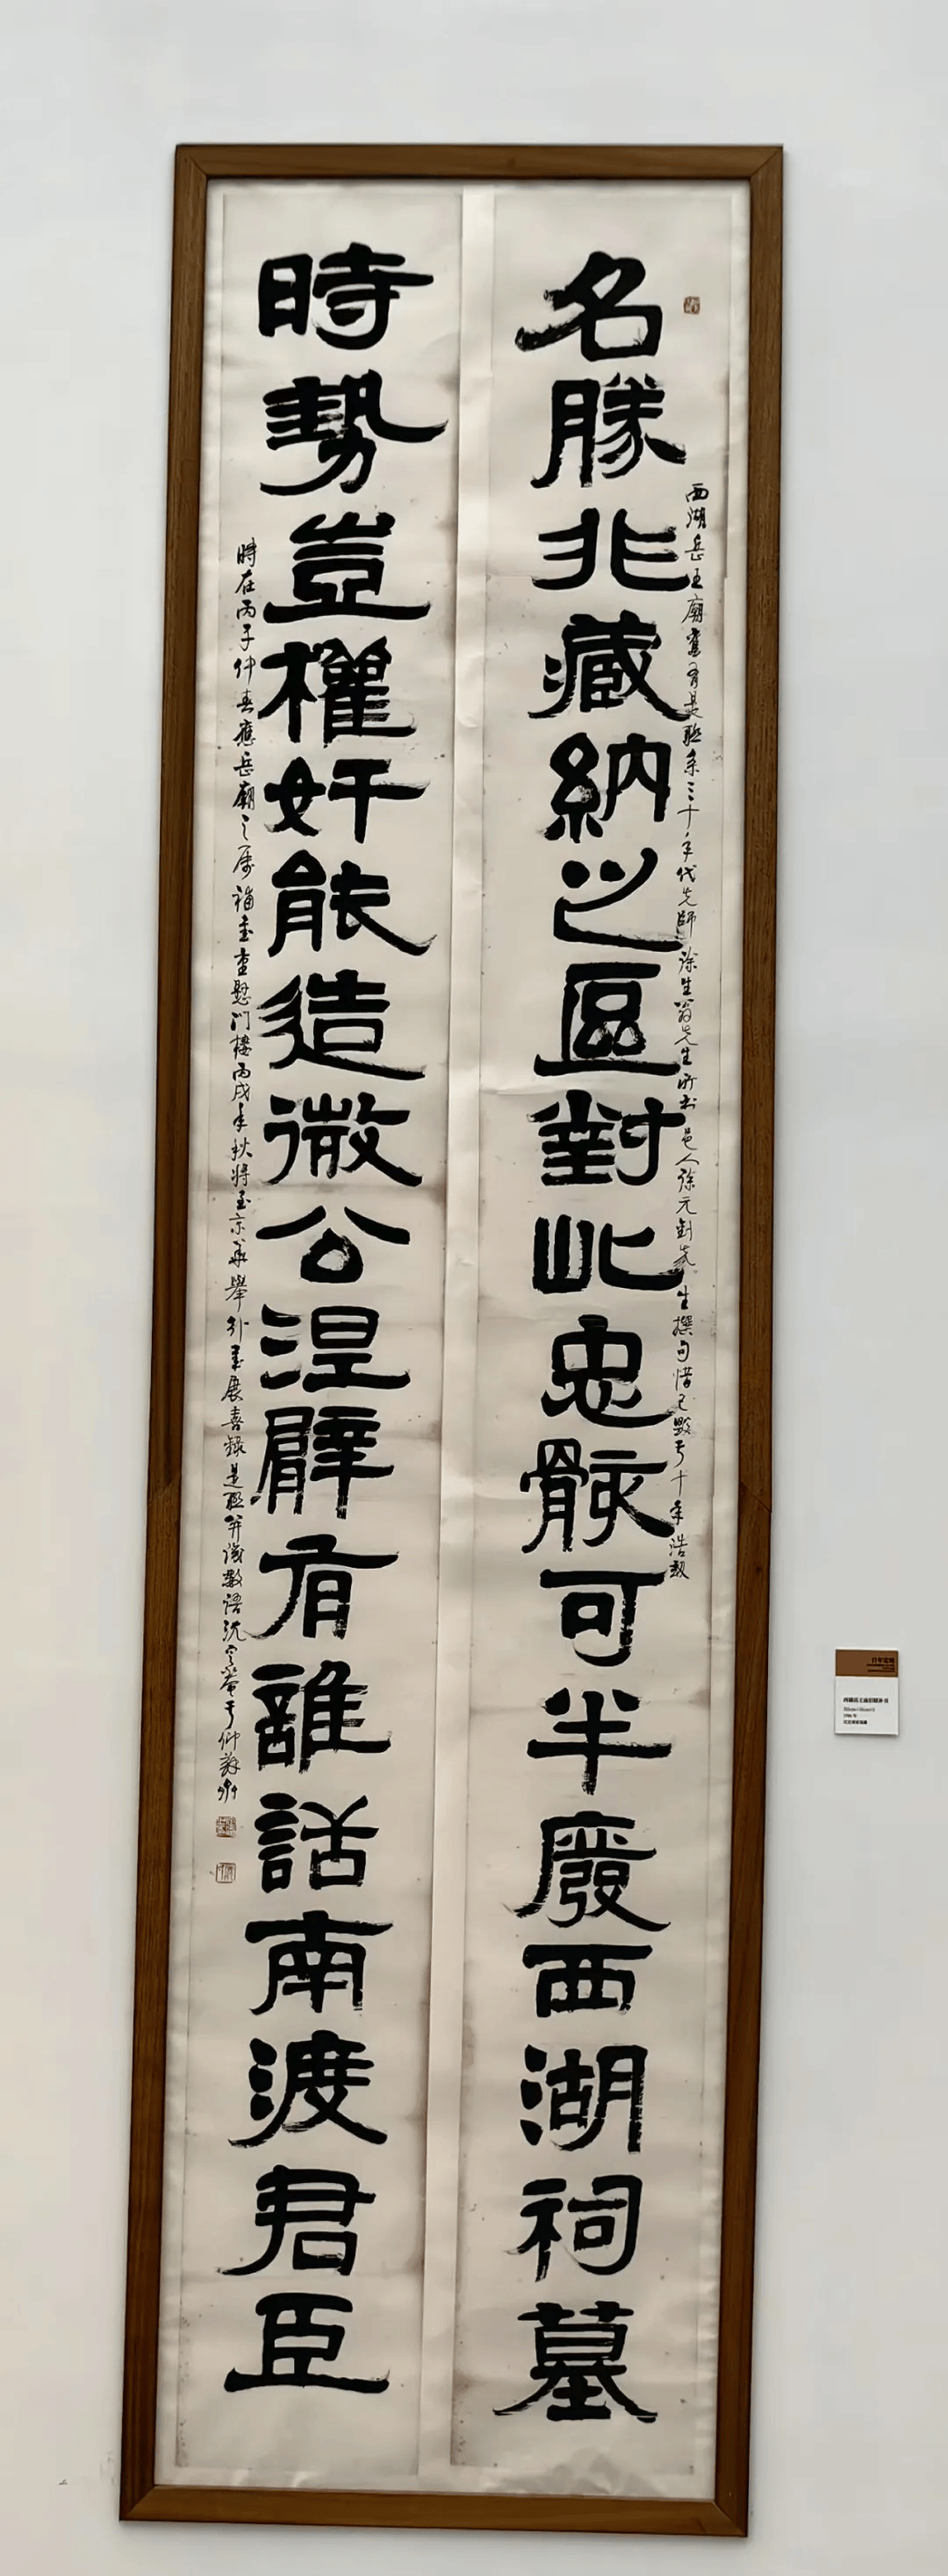 名勝非藏納之區對此忠骸可半廢西湖祠墓
西湖岳王廟舊有是聯系三十年代先師徐生翁先生所書邑人徐元釗先生撰句惜已毀于十年浩劫
時勢豈權奸能造微公涅臂有誰話南渡君臣
時在丙子仲春應岳廟之屬補書重懸門樓丙戌年秋將至京華舉行書展喜錄是聯并識數語沈定菴于仰蘇